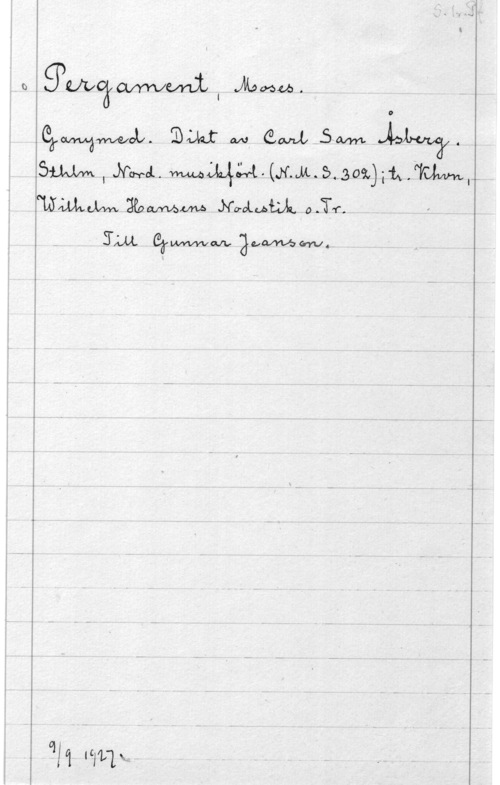 Pergament, Moses.
Ganymed. Dikt av Carl Sam Åsberg.
Sthlm, Nord. musikförl. (N.M.S. 302); tr. Khvn,
Wilhelm Hansens Nodestik o. Tr.
Till Gunnar Jeanson.
9/9 1927.